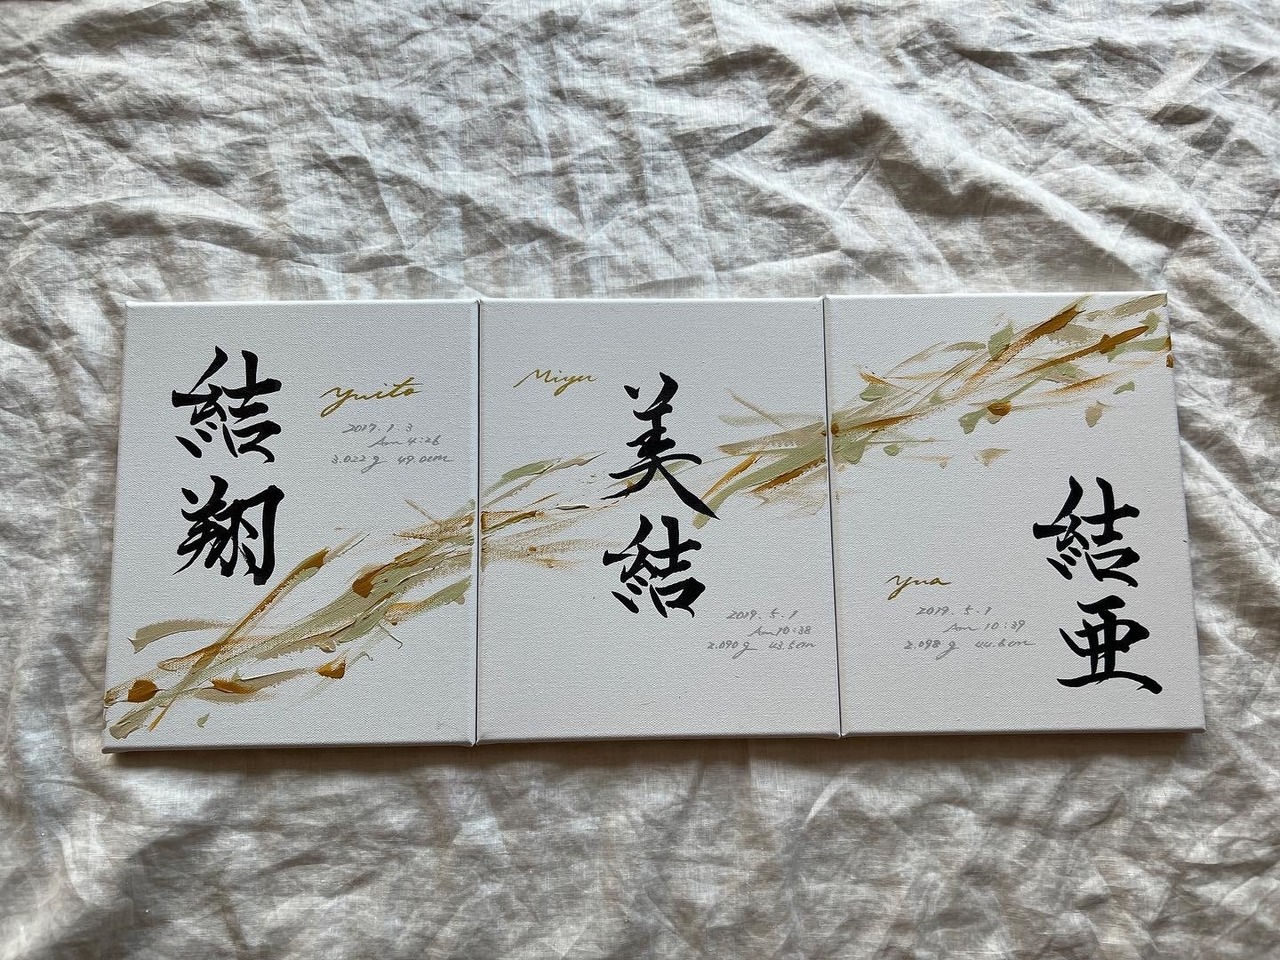 結翔
Yuito
2017.1.3
Am 4:26
3.022g 49.0cm
Miyu
美結
2019.5.1
Am 10:38
2.090g 43.5cm
結亜
Yua
2019.5.1
Am 10:39
2.098g 44.6cm